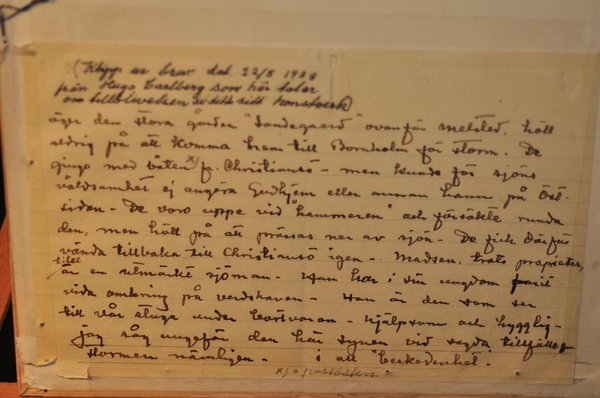 (Klipp ur brev dat 22/8 1938
från Hugo Carlberg som här talar
om tillblivelsen av detta sitt konstverk)
äger den stora gården "Sandegaard" ovanför Melsted, höll
aldrig på att komma hem till Bornholm för storm. De
gingo med båten x) fr. Christiansö - men kunde för sjöns
våldsamhet ej angöra Gudhjem eller annan hamn på Öst-
sidan. De voro uppe vid "hammeren" och försökte runda
den, men höll på att pressas ner av sjön. De fick därför
vända tillbaka till Christiansö igen. Madsen, trots proprietär,
titel
är en utmärkt sjöman. Han har i sin ungdom farit
vida omkring på världshaven. Han är den som ser
till vår stuga under bortvaron - hjälpsam och hygglig -
jag såg ungefär den här synen vid sagda tillfälle,
stormen nämligen. - i all "beskedenhet".
x) = postbåten